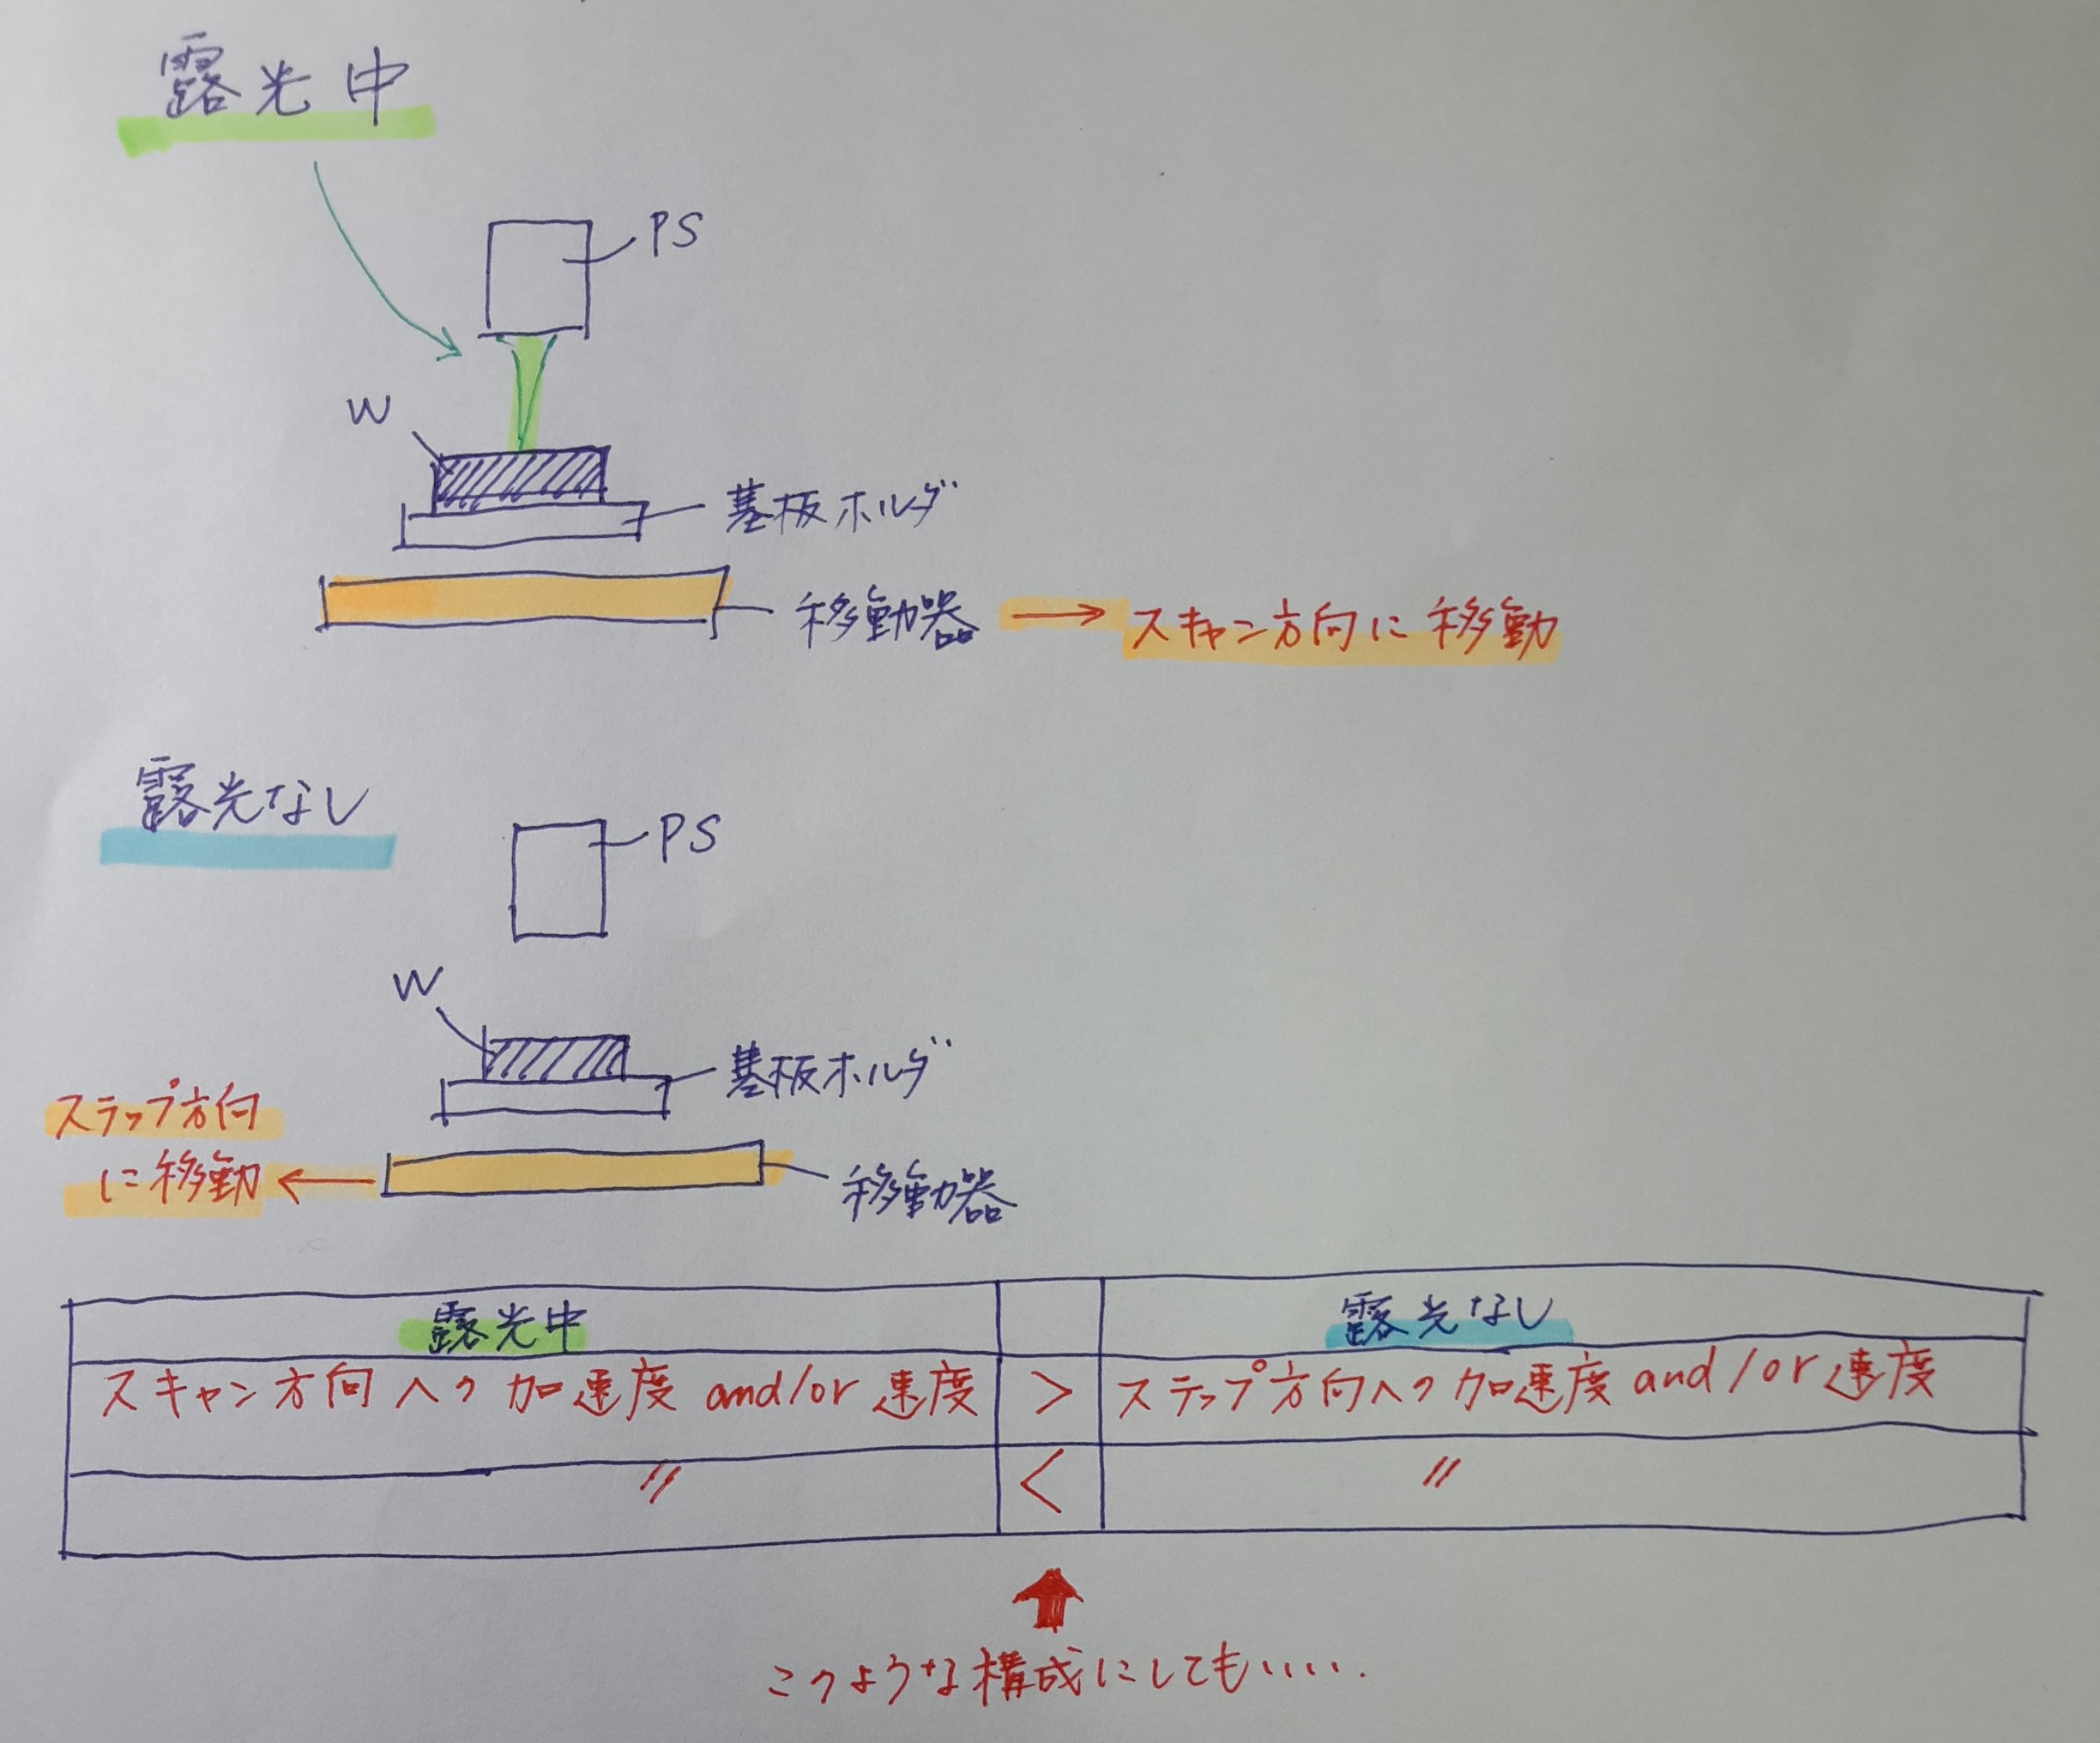 露光中
PS
W
基板ホルダ
移動器 → スキャン方向に移動
露光なし
PS
W
基板ホルダ
ステップ方向
に移動 ←
移動器
露光中 露光なし
スキャン方向への加速度 and/or 速度 > ステップ方向への加速度 and/or 速度
〃 < 〃
このような構成にしても・・・・・